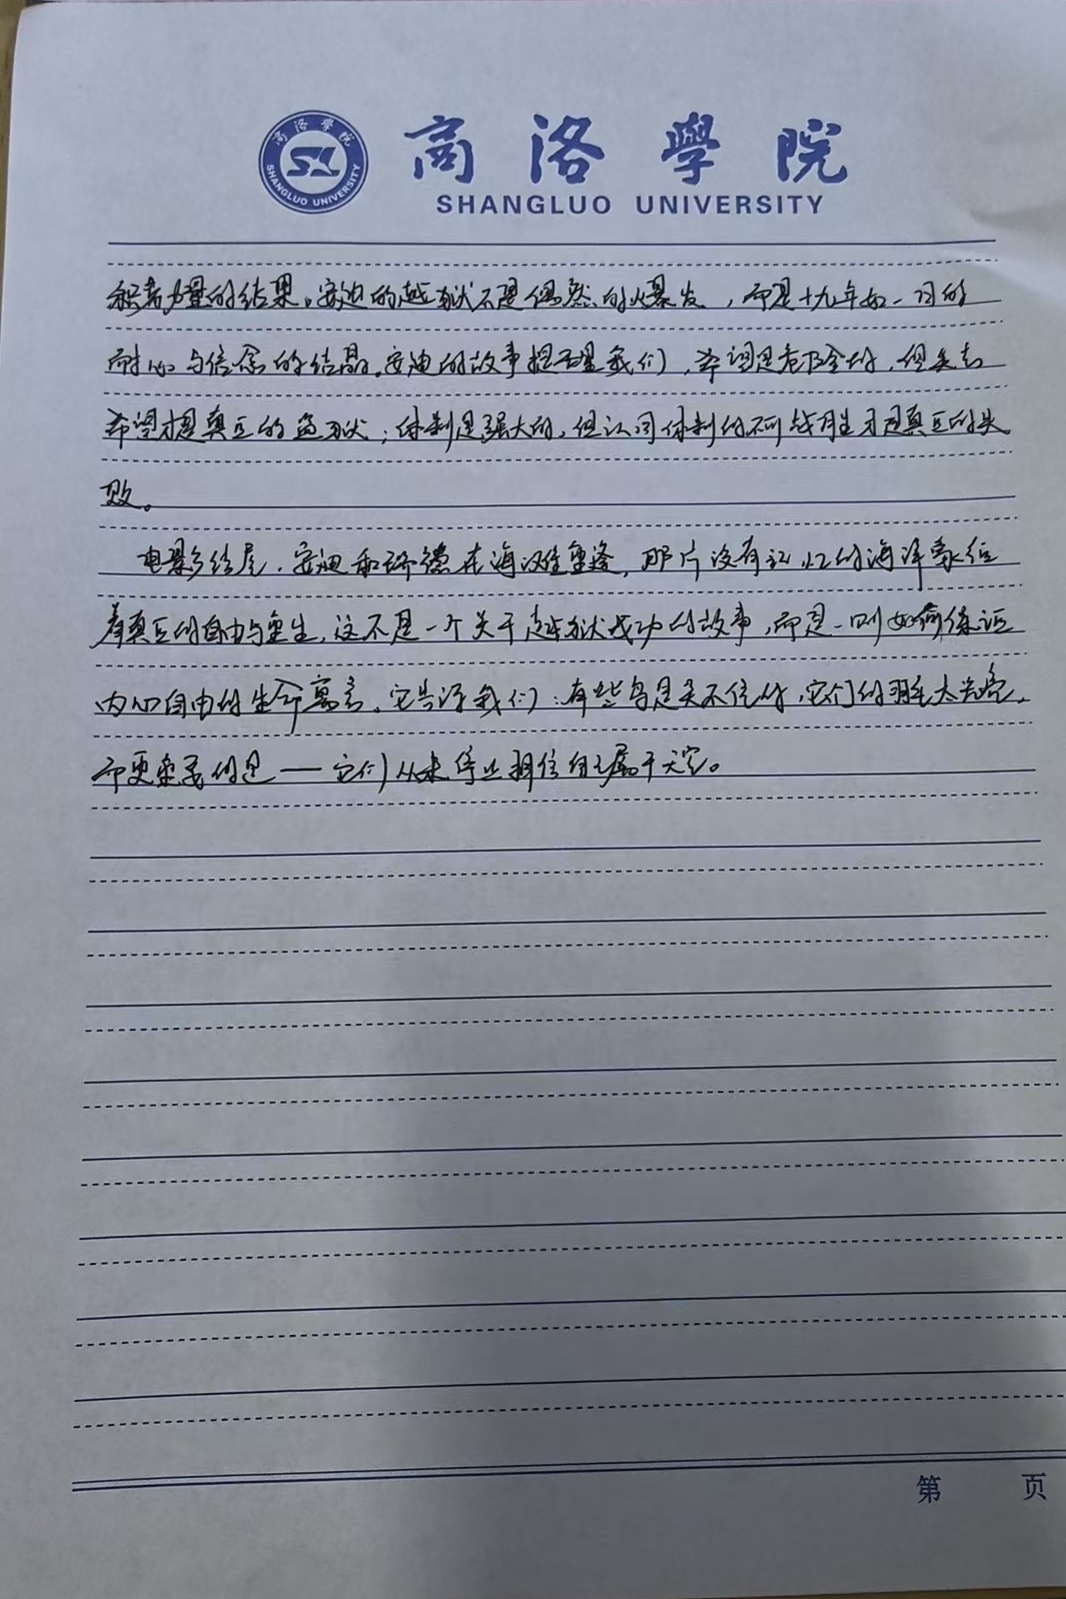 商洛學院
SHANGLUO UNIVERSITY
商洛學院
SHANGLUO UNIVERSITY
积蓄力量的结果。安迪的越狱不是偶然的爆发，而是十九年如一日的
耐心与信念的结晶。安迪的故事提醒我们，希望是危险的，但失去
希望才是真正的监狱；体制是强大的，但认同体制的不可战胜才是真正的失
败。
电影结尾，安迪和瑞德在海滩重逢，那片没有记忆的海洋象征
着真正的自由与重生，这不是一个关于越狱成功的故事，而是一则如何保证
内心自由的生命寓言。它告诉我们：有些鸟是关不住的，它们的羽毛太光亮，
而更重要的是——它们从未停止相信自己属于天空。
第 页